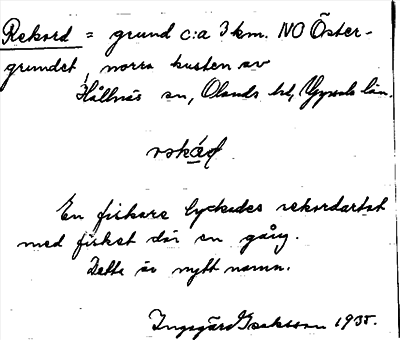 Rekord = grund c:a 3 km. NO Öster-
grundet, norra kusten av
Hållnäs sn, Olands hd, Uppsala län.
En fiskare lyckades rekordartat
med fisket där en gång.
Detta är nytt namn.
Ingegärd Isaksson 1935.